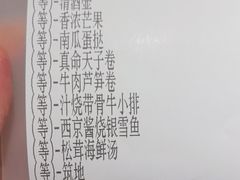 (等)-清酒壶
(等)-香浓芒果
(等)-南瓜蛋挞
(等)-真命天子卷
(等)-牛肉芦笋卷
(等)-汁烧带骨牛小排
(等)-西京酱烧银雪鱼
(等)-松茸海鲜汤
(等)-筑地